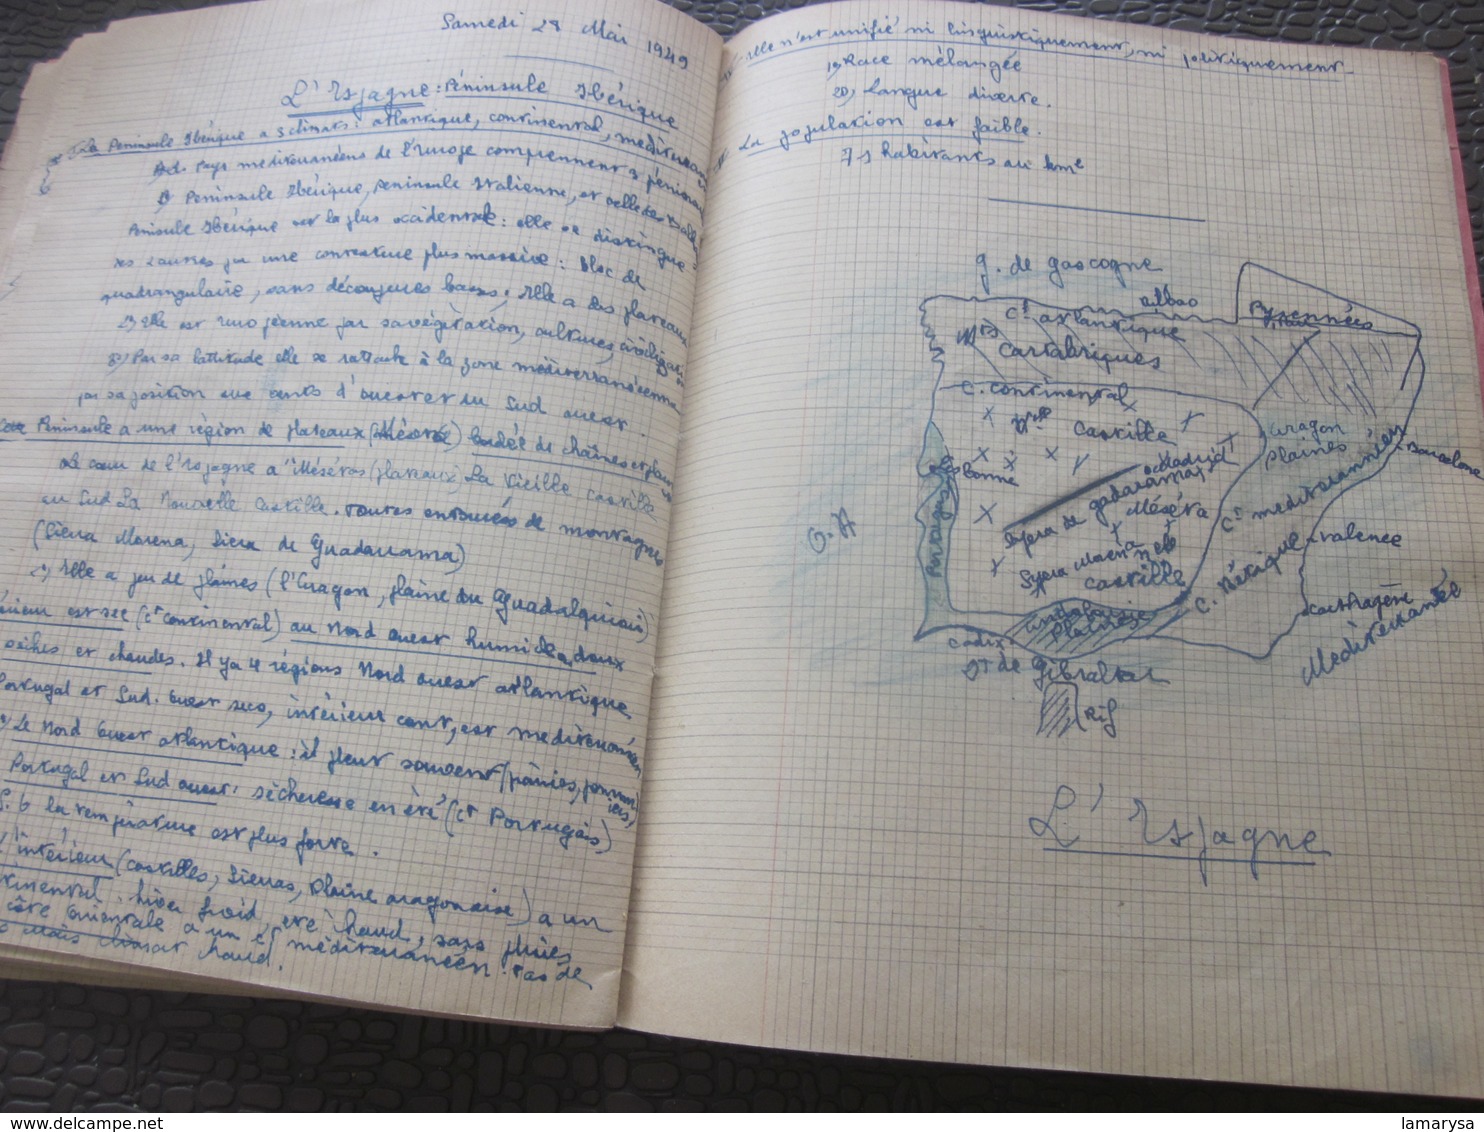 Samedi 28 Mai 1949
L'Espagne : Péninsule Ibérique
La Péninsule Ibérique a 3 climats : atlantique, continental, mediterranéen
Les Pays mediterranéens de l'Europe comprennent 3 péninsules
Péninsule Ibérique, péninsule Italienne, et celle des Balkans
Péninsule Ibérique est la plus occidentale : elle se distingue
des autres par une contexture plus massive : bloc
quadrangulaire, sans découpures basses ; Elle a des plateaux
2°) Elle est européenne par sa végétation, cultures, civilisation
3°) Par sa lattitude elle se rattache à la zone méditerranéenne
par sa position aux vents d'ouest et du Sud ouest.
Cette Péninsule a une région de plateaux (Méséta) bordée de chaînes et plaines
Le cœur de l'Espagne a 2 Mésétas (plateaux) La Vieille Castille
au Sud La Nouvelle Castille. Toutes entourées de montagnes
(Siera Morena, Siera de Guadarrama)
2°) Elle a peu de plaines (l'Aragon, plaine du Guadalquivir)
est sec (ct continental) au Nord ouest humide, doux
sèches et chaudes. Il y a 4 régions Nord ouest atlantique
Portugal et Sud. Ouest secs, intérieur cont, est mediterranéen
Le Nord Ouest atlantique : il pleut souvent (prairies, pommiers)
Portugal et Sud ouest : sécheresse en été (ct Portugais)
la température est plus forte.
L'intérieur (castilles, Sieras, Plaine aragonaise) a un
hiver froid, été chaud, sans pluies
côte Orientale a un ct méditerranéen. Pas de
chaud.
elle n'est unifié ni linguistiquement, ni politiquement.
1°) Race mélangée
2°) Langue diverse.
La population est faible.
51 habitants au km²
g. de gascogne
Pyrennées
Ct atlantique
Mts Cartabriques
C. continental
Vlle Castille
aragon
plaines
Barcelone
Madrid
Lisbonne
Siera de gadarama
Méséta
Ct mediterannéen
O. A
Portugal
Syera Morena
Nelle Castille
C. Bétique
valence
Carthagène
andalousie
Plaine
Cadix
Dt de Gibraltar
Mediterranée
Rif
L'Espagne
lamarysa